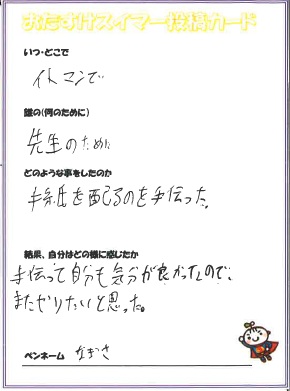 おたすけスイマー投稿カード
いつ・どこで
イトマンで
誰の(何のために)
先生のために
どのような事をしたのか
手紙を配るのを手伝った。
結果、自分はどの様に感じたか
手伝って自分も気分が良かったので、
またやりたいと思った。
ペンネーム なぎさ